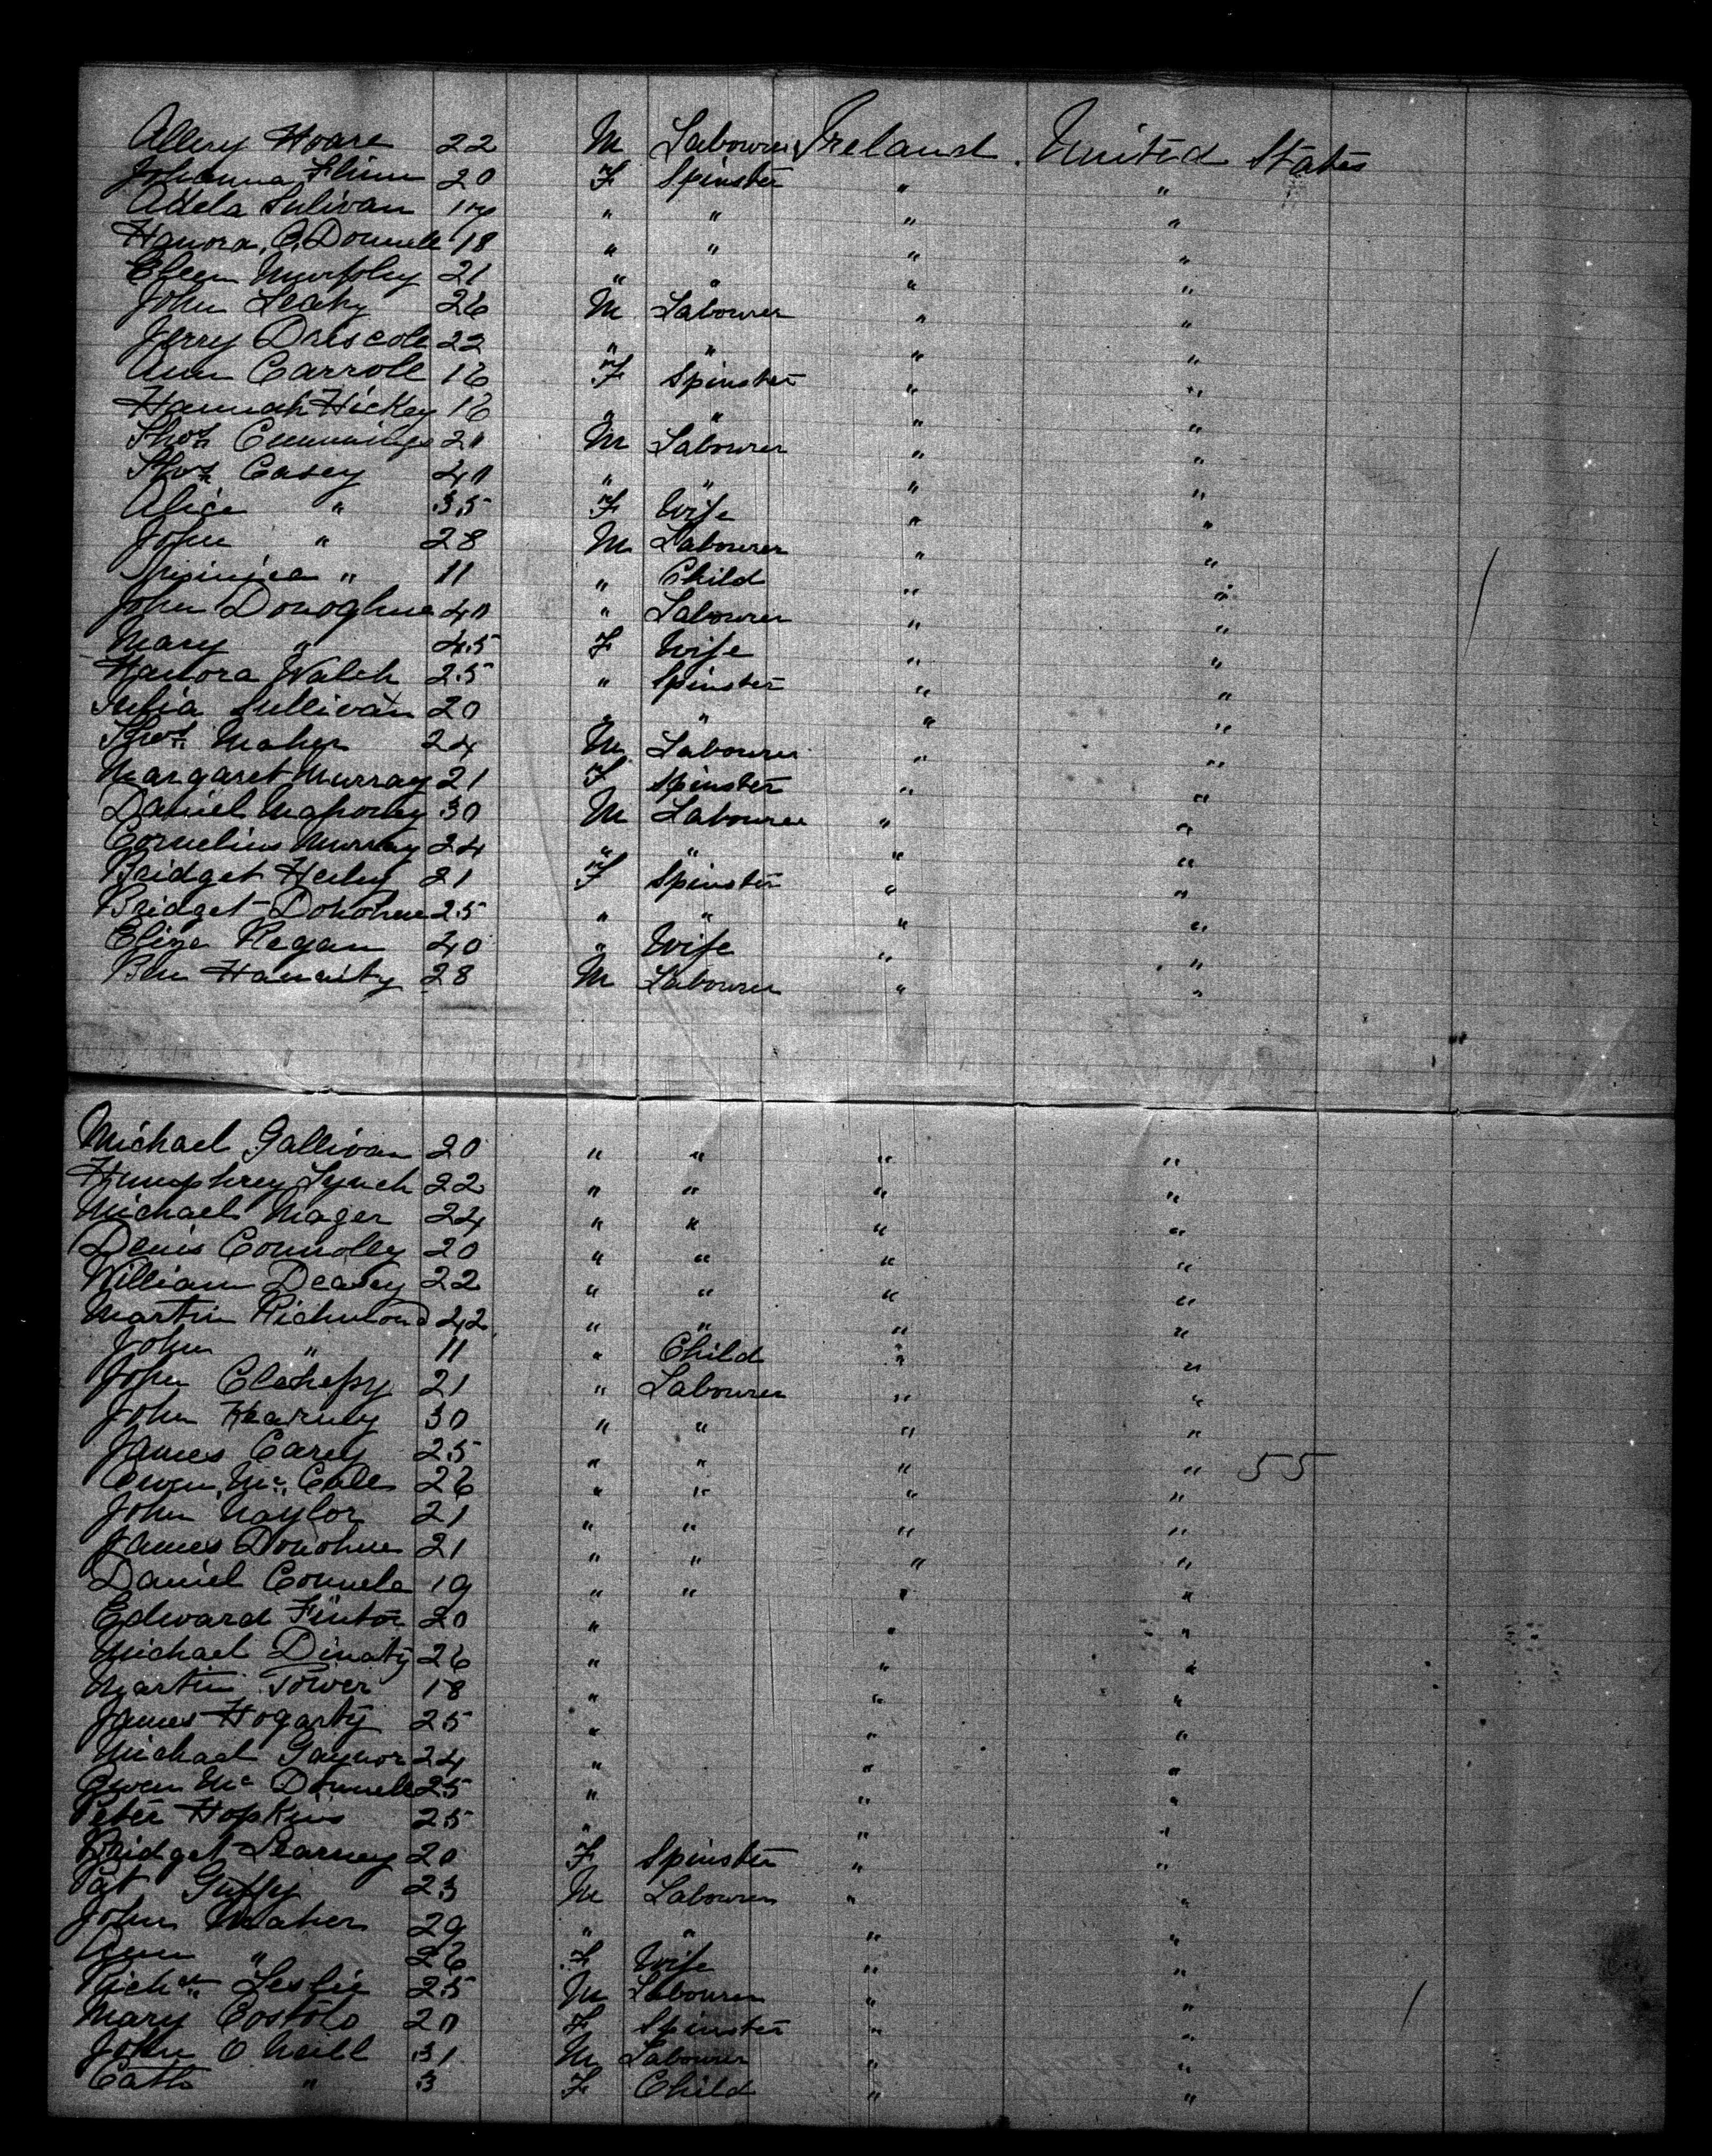 Allery Hoare 22 M Labourer Ireland United States
Johanna Flinn 20 F Spinster " "
Adela Sulivan 17 " " " "
Hanora O'Donnell 18 " " " "
Eleen Murphy 21 " " " "
John Leahy 26 M Labourer " "
Jerry Driscole 22 " " " "
Ann Carroll 16 F Spinster " "
Hannah Hickey 16 " " " "
Thos Cummings 21 M Labourer " "
Thos Casey 40 " " " "
Alice " 35 F Wife " "
John " 28 M Labourer " "
" 11 " Child " "
John Donoghue 40 " Labourer " "
Mary " 45 F Wife " "
Hanora Walch 25 " Spinster " "
Julia Sullivan 20 " " " "
Thos Maher 24 M Labourer " "
Margaret Murray 21 F Spinster " "
Daniel Mahoney 30 M Labourer " "
Cornelius Murray 24 " " " "
Bridget Heley 21 F Spinster " "
Bridget Donohue 25 " " " "
Eliza Regan 40 " Wife " "
Ben Hanaity 28 M Labourer " "
Michael Gallivan 20 " " " "
Humphrey Lynch 22 " " " "
Michael Mager 24 " " " "
Denis Connolly 20 " " " "
William Deasey 22 " " " "
Martin Richmond 42 " " " "
John " 11 " Child " "
John 21 " Labourer " "
John Kearney 30 " " " "
James Carey 25 " " " "
Owen Mc Cale 26 " " " " 55
John Naylor 21 " " " "
James Donohue 21 " " " "
Daniel Connele 19 " " " "
Edward Finton 20 " " "
Michael Dinaty 26 " " "
Martin Power 18 " " "
James Hogarty 25 " " "
Michael Gaynor 24 " " "
Owen Mc Donnell 25 " " "
Peter Hopkins 25 " " "
Bridget Kearney 20 F Spinster " "
Pat Guffy 23 M Labourer " "
John Maher 29 " " " "
Ann " 26 F Wife " "
Richd Leslie 25 M Labourer " "
Mary Costolo 20 F Spinster " "
John O Neill 31 M Labourer " "
Cath " 3 F Child " "